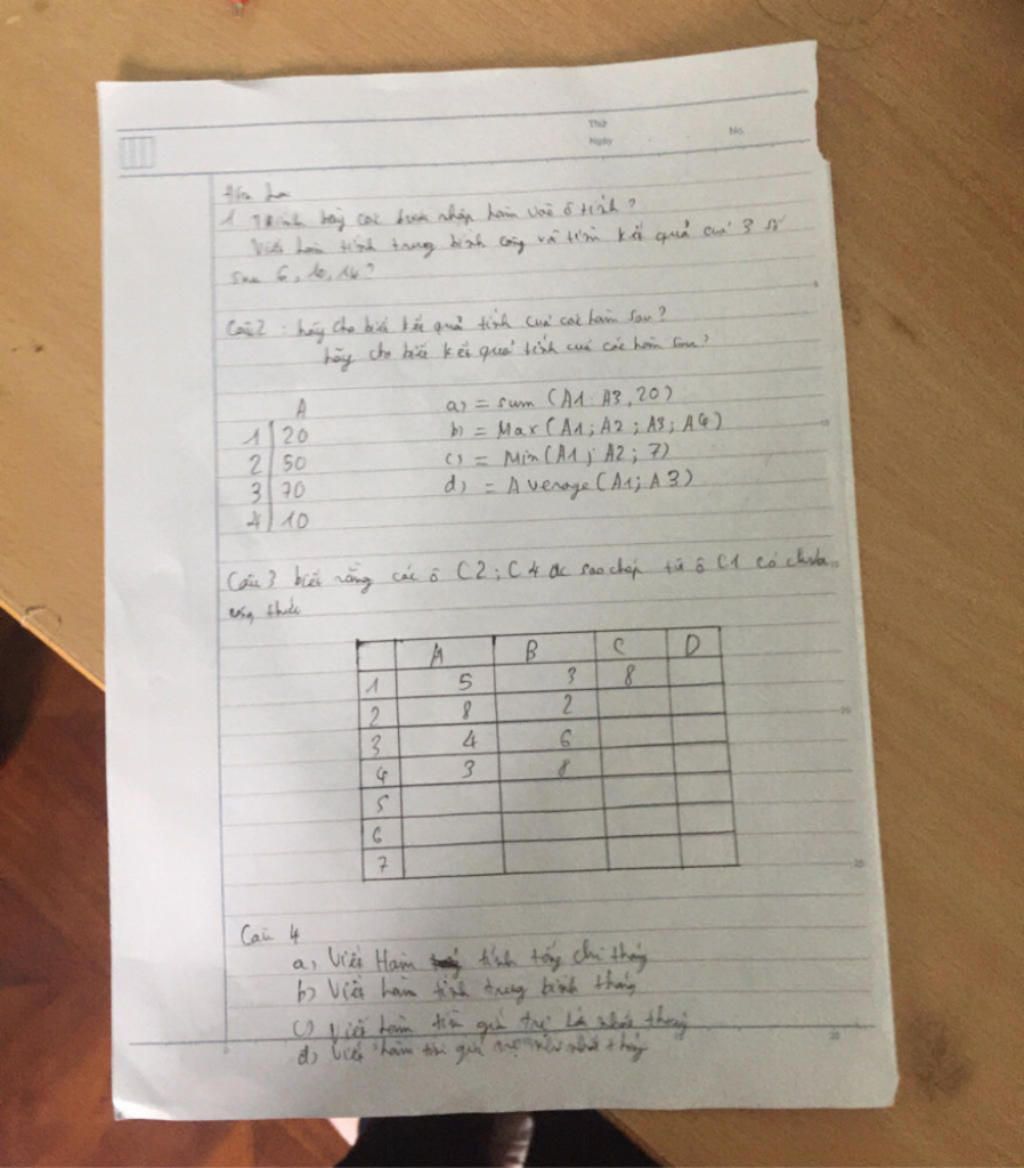 Thứ
Ngày No.
1 Trình bày các bước nhập hàm vào ô tính ?
Viết hàm tính trung bình cộng và tìm kết quả của 3 số
sau 6, 10, 14 ?
Câu 2 : hãy cho biết kết quả tính của các hàm sau ?
hãy cho biết kết quả tính của các hàm sau ?
A
1 20
2 50
3 70
4 10
a) = sum (A1: A3, 20)
b) = Max (A1; A2 ; A3; A4)
c) = Min (A1; A2 ; 7)
d) = Average (A1; A3)
Câu 3 biết rằng các ô C2 ; C4 đc sao chép từ ô C1 có chứa
công thức
A B C D
1 5 3 8
2 8 2
3 4 6
4 3 8
5
6
7
Câu 4
a, Viết Hàm tính tổng chi tháng
b) Viết hàm tính trung bình tháng
c) Viết hàm tìm giá trị lớn nhất tháng
d) Viết hàm tìm giá trị nhỏ nhất tháng